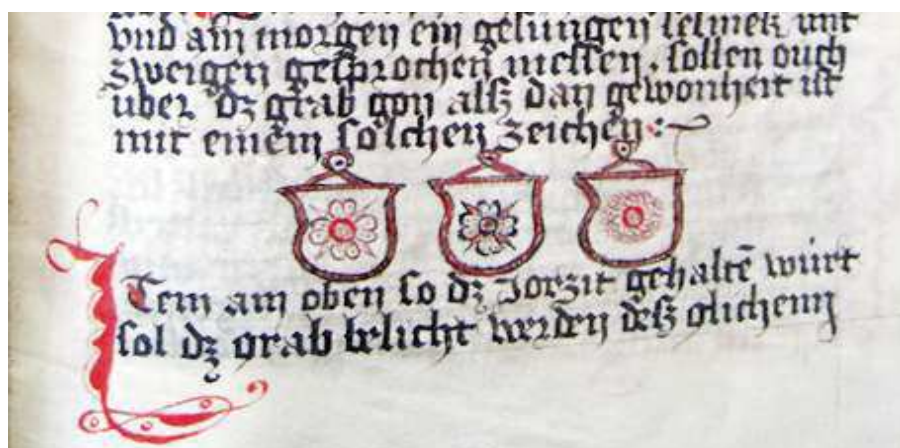 vnd am morgen ein gesungen selmeß mit
zweigen gesprochen messen. sollen ouch
uber dz grab gon alß dan gewonheit ist
mit einem solchen zeichen:
Item am oben so dz Jorzit gehaltē würt
sol dz grab belicht werden deß glichenn